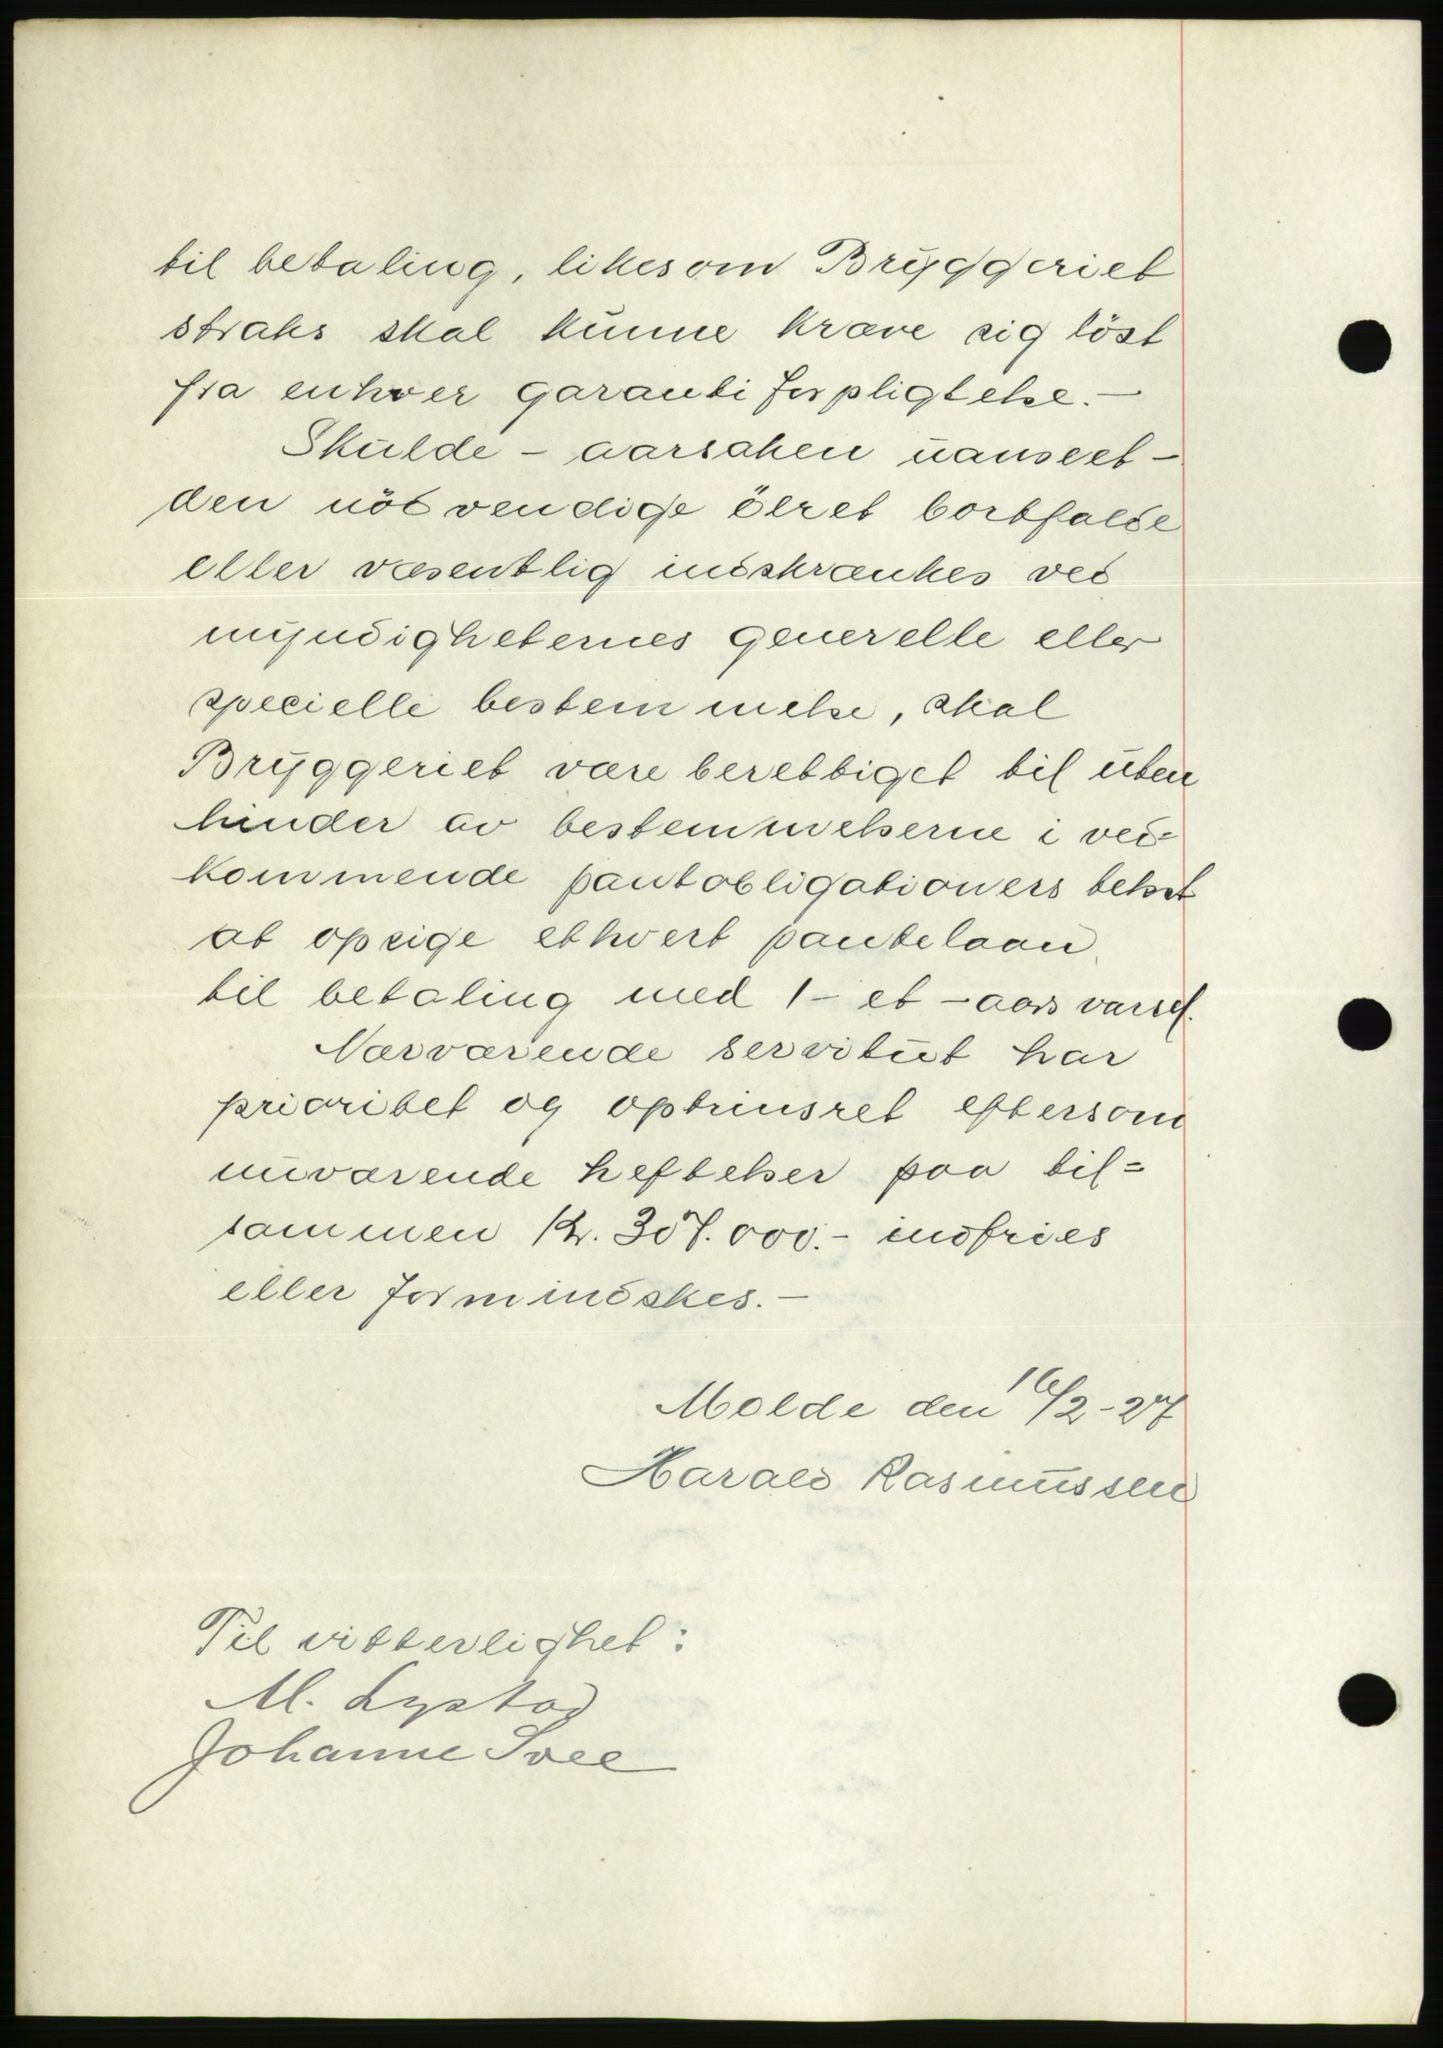 til betaling, likesom Bryggeriet
straks skal kunne kræve sig löst
fra enhver garantiforpligtelse.-
Skulde - aarsaken uanseet -
den nötvendige ölret bortfalde
eller væsentlig indskrænkes ved
myndigheternes generelle eller
specielle bestemmelse, skal
Bryggeriet være berettiget til uten
hinder av bestemmelserne i ved=
kommende pantobligationers tekst
at opsige ethvert pantelaan
til betaling med 1 - et - aars varsel.
Nærværende servitut har
prioritet og optrinsret eftersom
nuværende heftelser paa til=
sammen Kr. 307.000.- indfries
eller formindskes.-
Molde den 16/2-27
Harald Rasmussen
Til vitterlighet:
M. Lystad
Johanne Svee